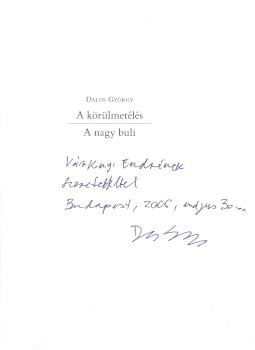 DALOS GYÖRGY
A körülmetélés
A nagy buli
Várkonyi Endrének
szeretettel
Budapest, 2006, május 30-án